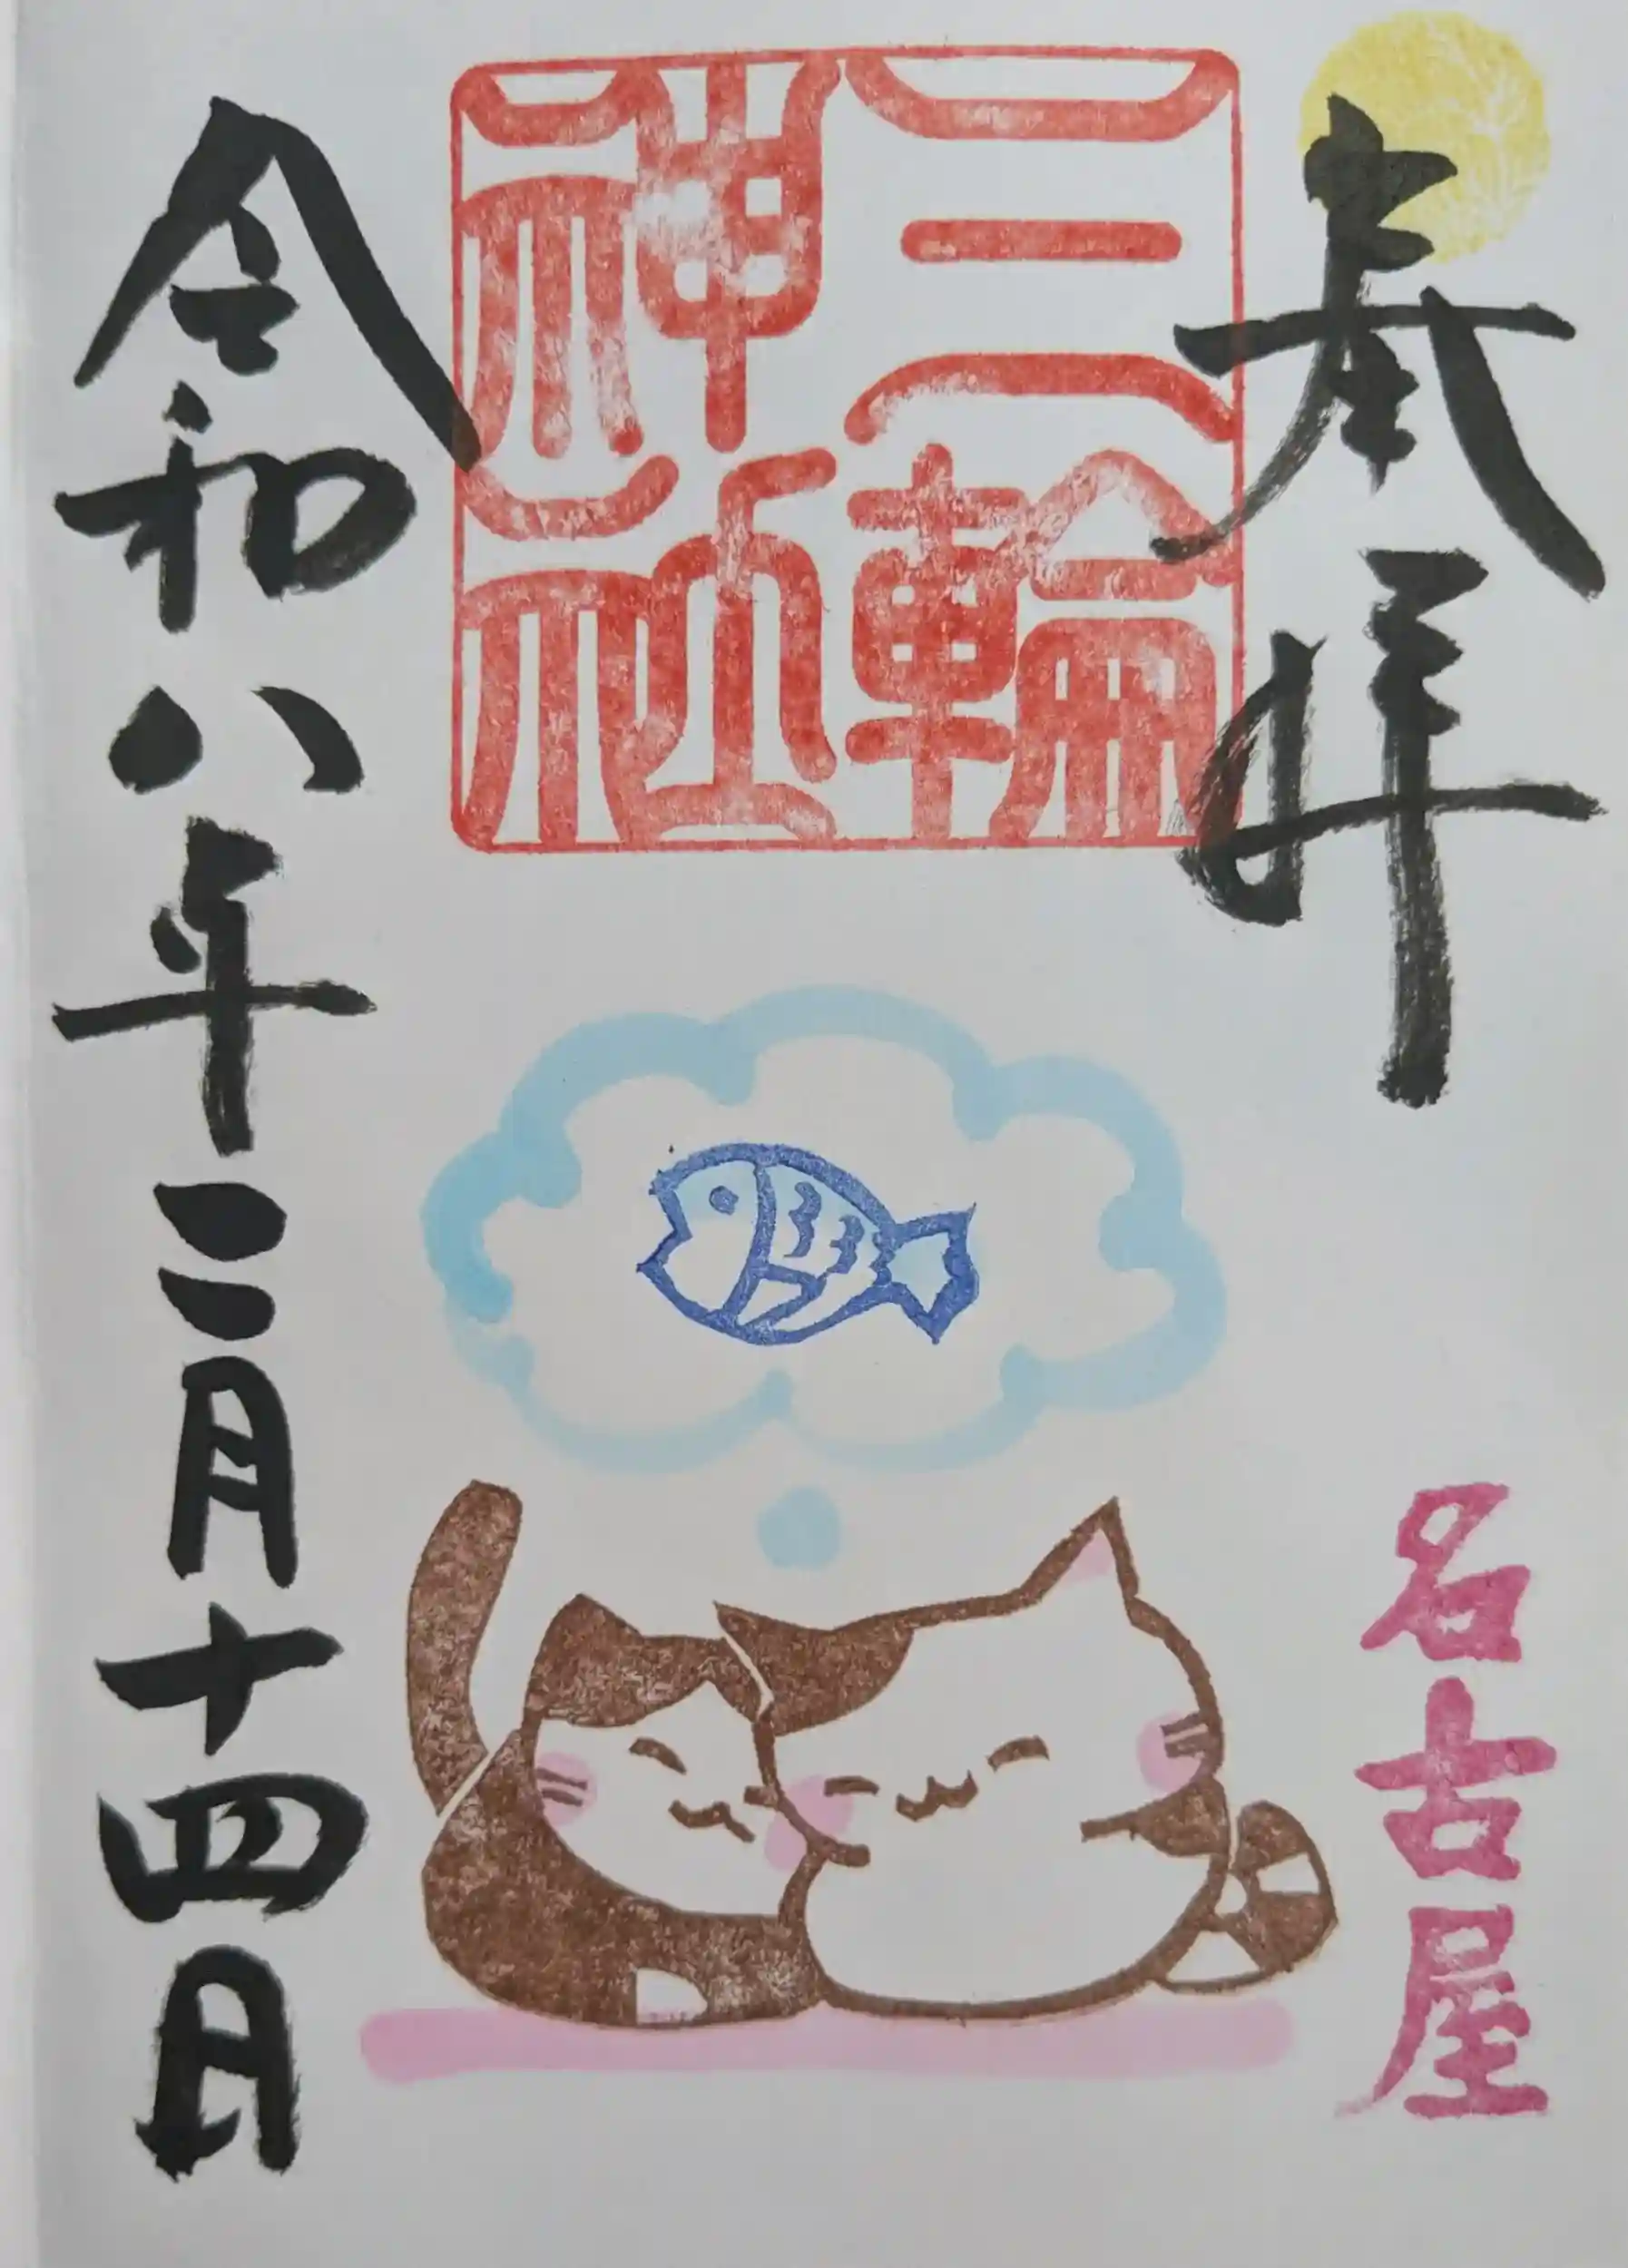 奉拝
三輪
神社
名古屋
令和八年二月十四日